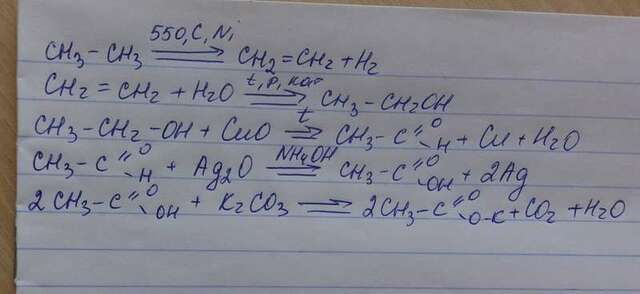 CH3-CH3 550,C,Ni ⟶ CH2=CH2+H2
CH2=CH2+H2O t,p,кат ⟶ CH3-CH2OH
CH3-CH2-OH+CuO t ⟶ CH3-C=O-H+Cu+H2O
CH3-C=O-H+Ag2O NH4OH ⟶ CH3-C=O-OH+2Ag
2CH3-C=O-OH+K2CO3 ⟶ 2CH3-C=O-O-K+CO2+H2O